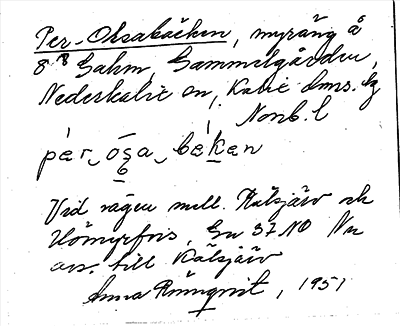 Per-Oksabäcken, myräng å
8 ª Gahm, Gammelgården,
Nederkalix sn, Kalix dms. tg
Nonb. l
pèr ósa bèken
Vid vägen mell. Kälsjärv och
Hömyrfors, Gu 37 NO Nu
avs. till Kälsjärv
Anna Rönnqvist, 1951